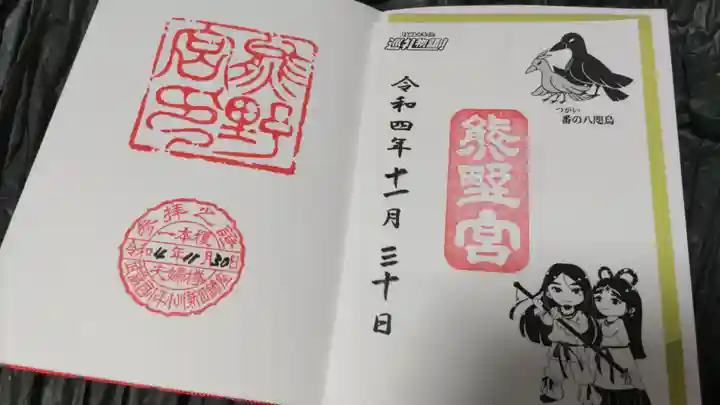 熊野
宮印
参拝之證
一本欅
令和4年11月30日
夫婦欅
巡礼物語！
つがい
番の八咫烏
熊野宮
令和四年十一月三十日